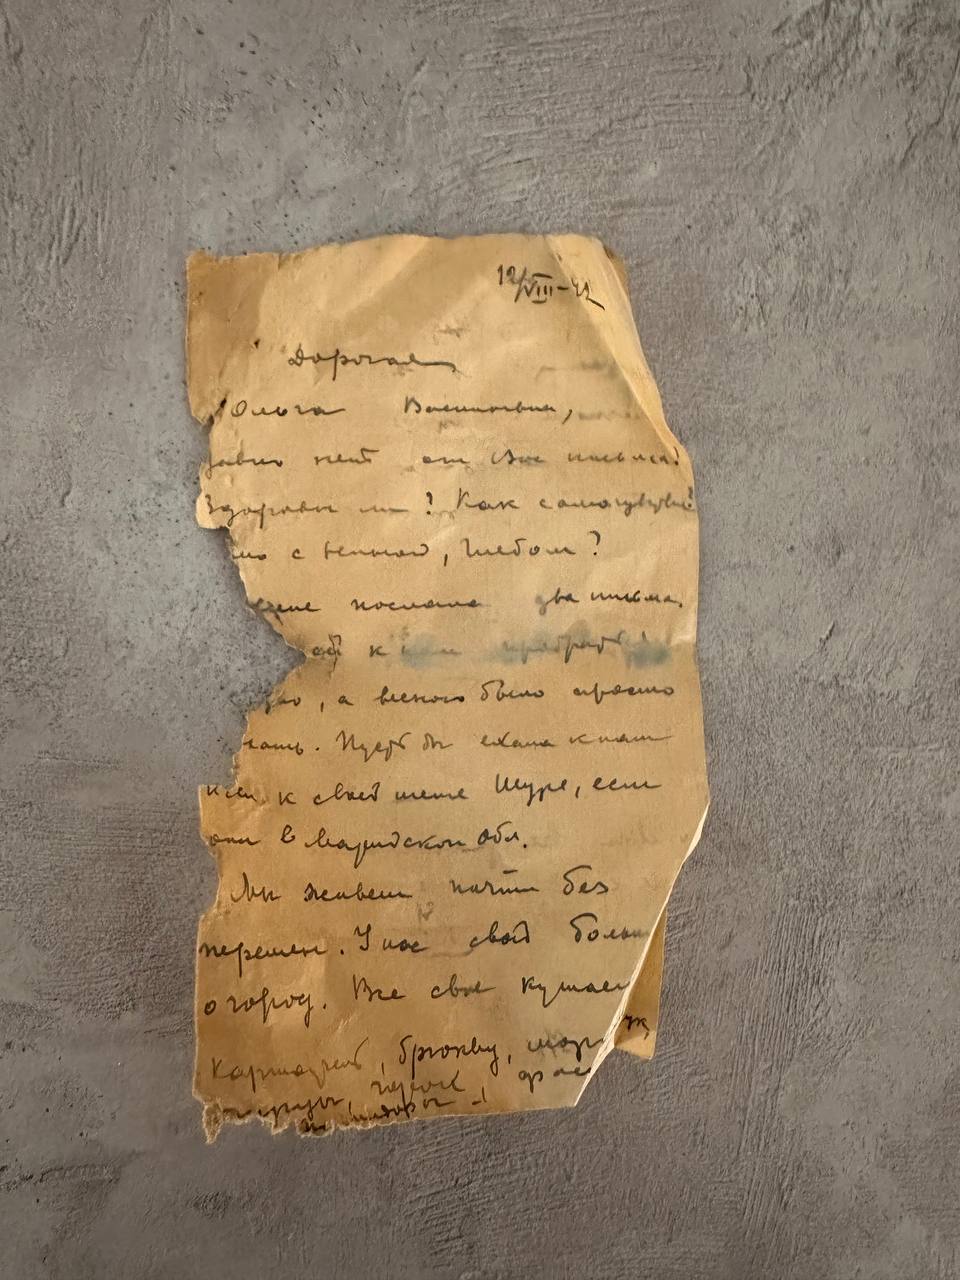 12/VIII-42
Дорогая
Ольга Васильевна,
давно нет от Вас письма!
Здоровы ли? Как самочувствие
с Глебом?
послала два письма.
к
, а весною было просто
. Пусть бы ехала к нам
к своей тете Шуре, если
они в Марийской обл.
Мы живем почти без
перемен. У нас свой больш
огород. Все свое кушаем
картофель, брюкву, мор
огурцы, горох, фас
помидоры